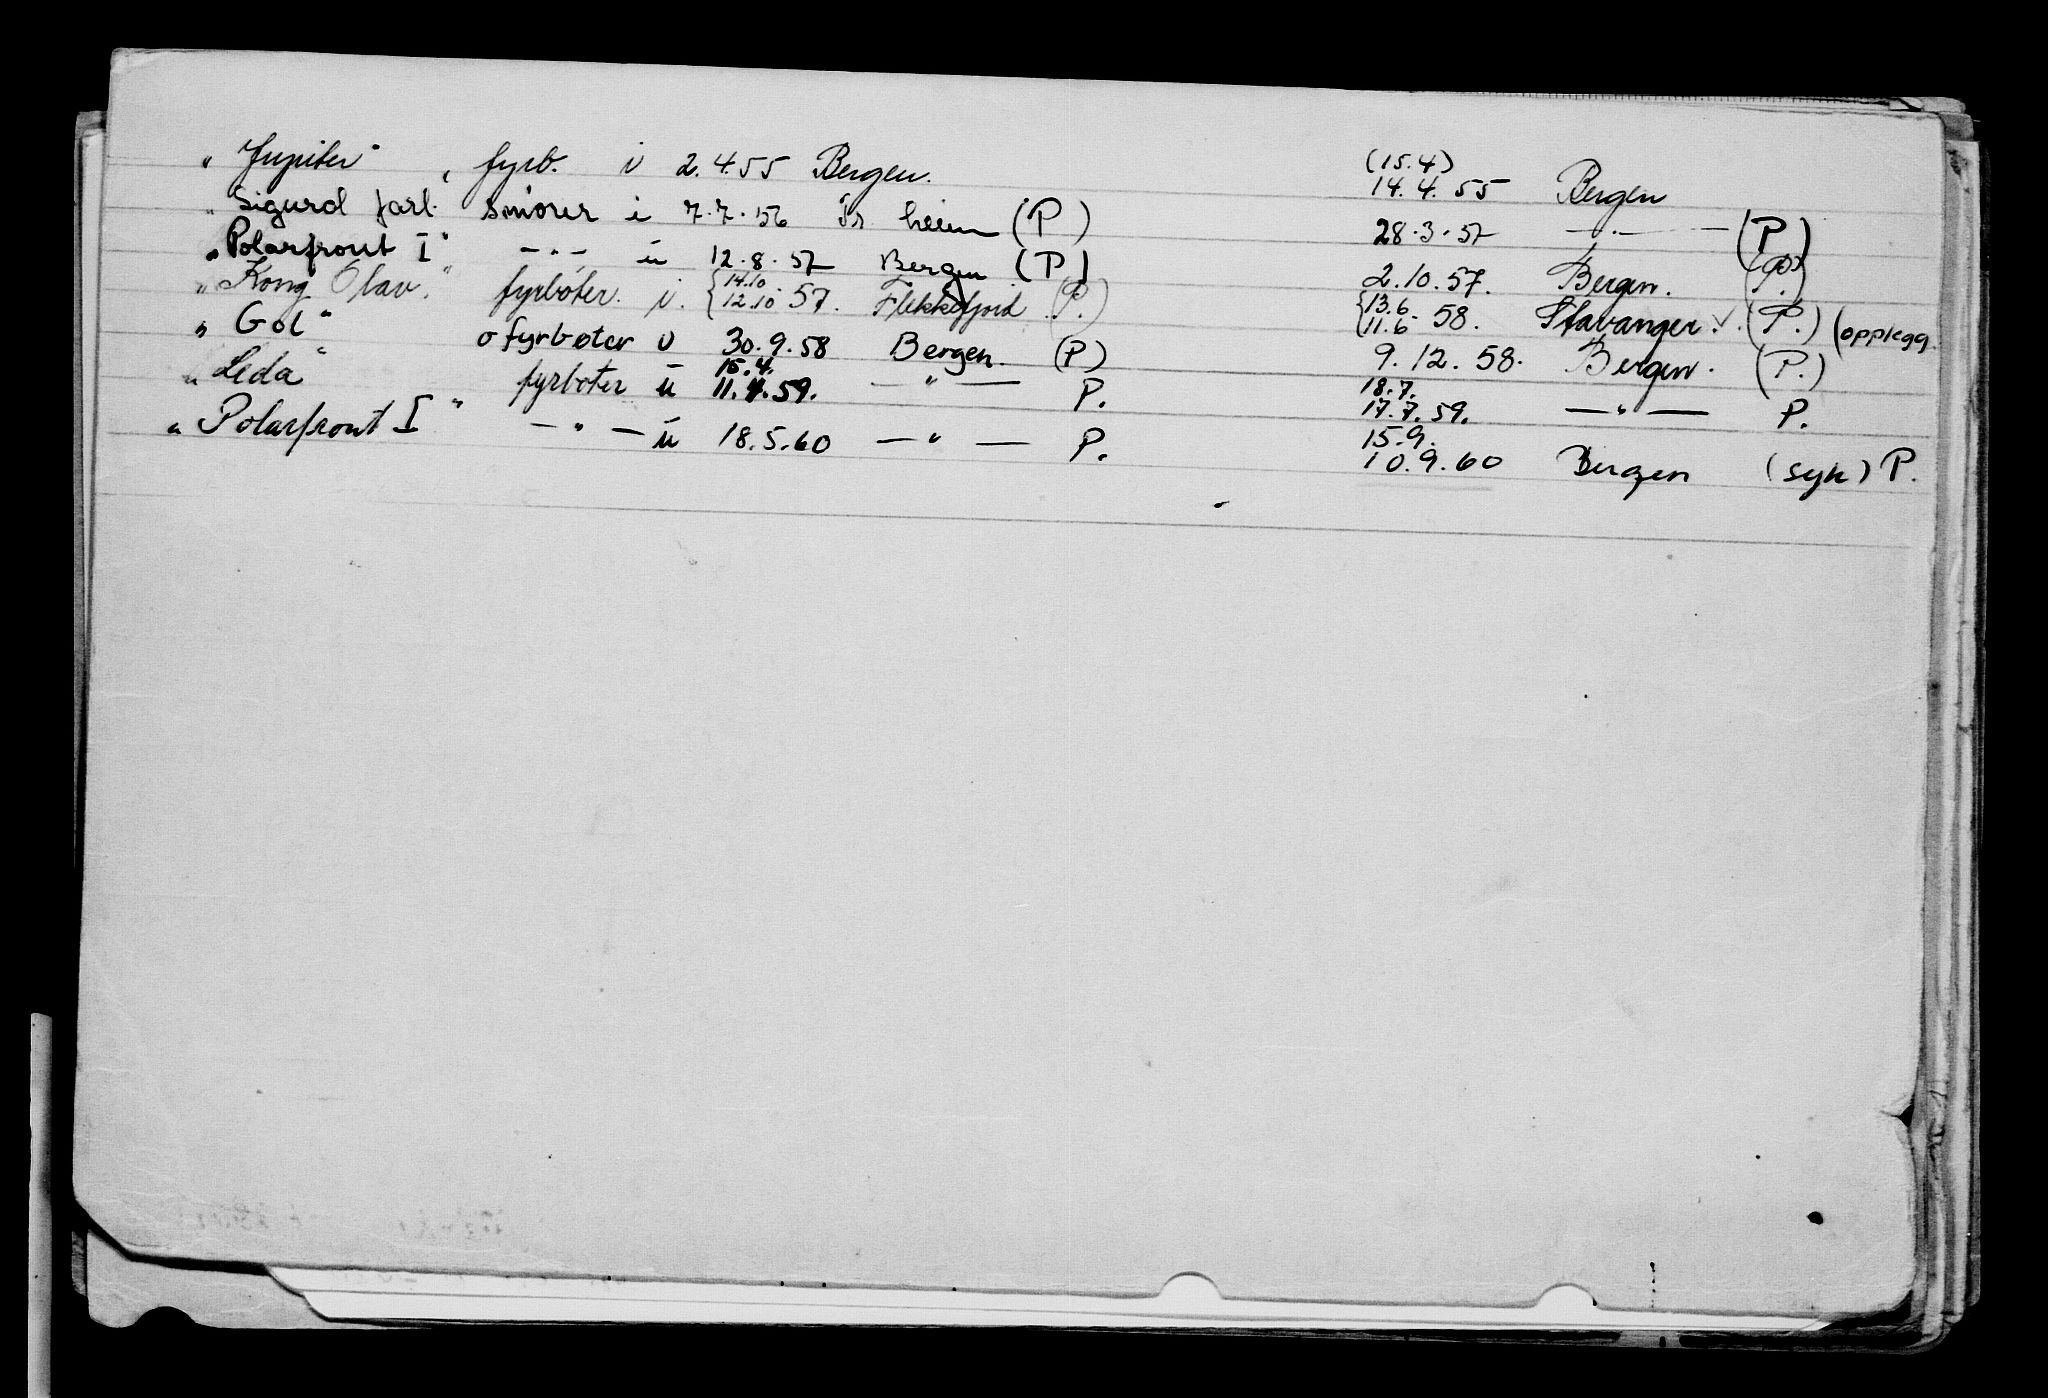 "Jupiter", fyrb. i 2.4.55 Bergen. (15.4) 14.4.55 Bergen
"Sigurd Jarl" smörer i 7.7.56 Tr.heim (P) 28.3.57 —"— (P)
"Polarfront I" —"— ü 12.8.57 Bergen (P) 2.10.57. Bergen. (P.)
"Kong Olav." fyrböter. i. {14.10 12.10.57. Flekkefjord (P.) {13.6 11.6.58. Stavanger. (P.) (opplegg
"Gol" o fyrbøter i 30.9.58 Bergen. (P) 9.12.58. Bergen. (P.)
"Leda" fyrböter ü 15.4. 11.4.59. —"— P. 18.7. 17.7.59. —"— P.
"Polarfront I" —"— ü 18.5.60 —"— P. 15.9. 10.9.60 Bergen (syk) P.